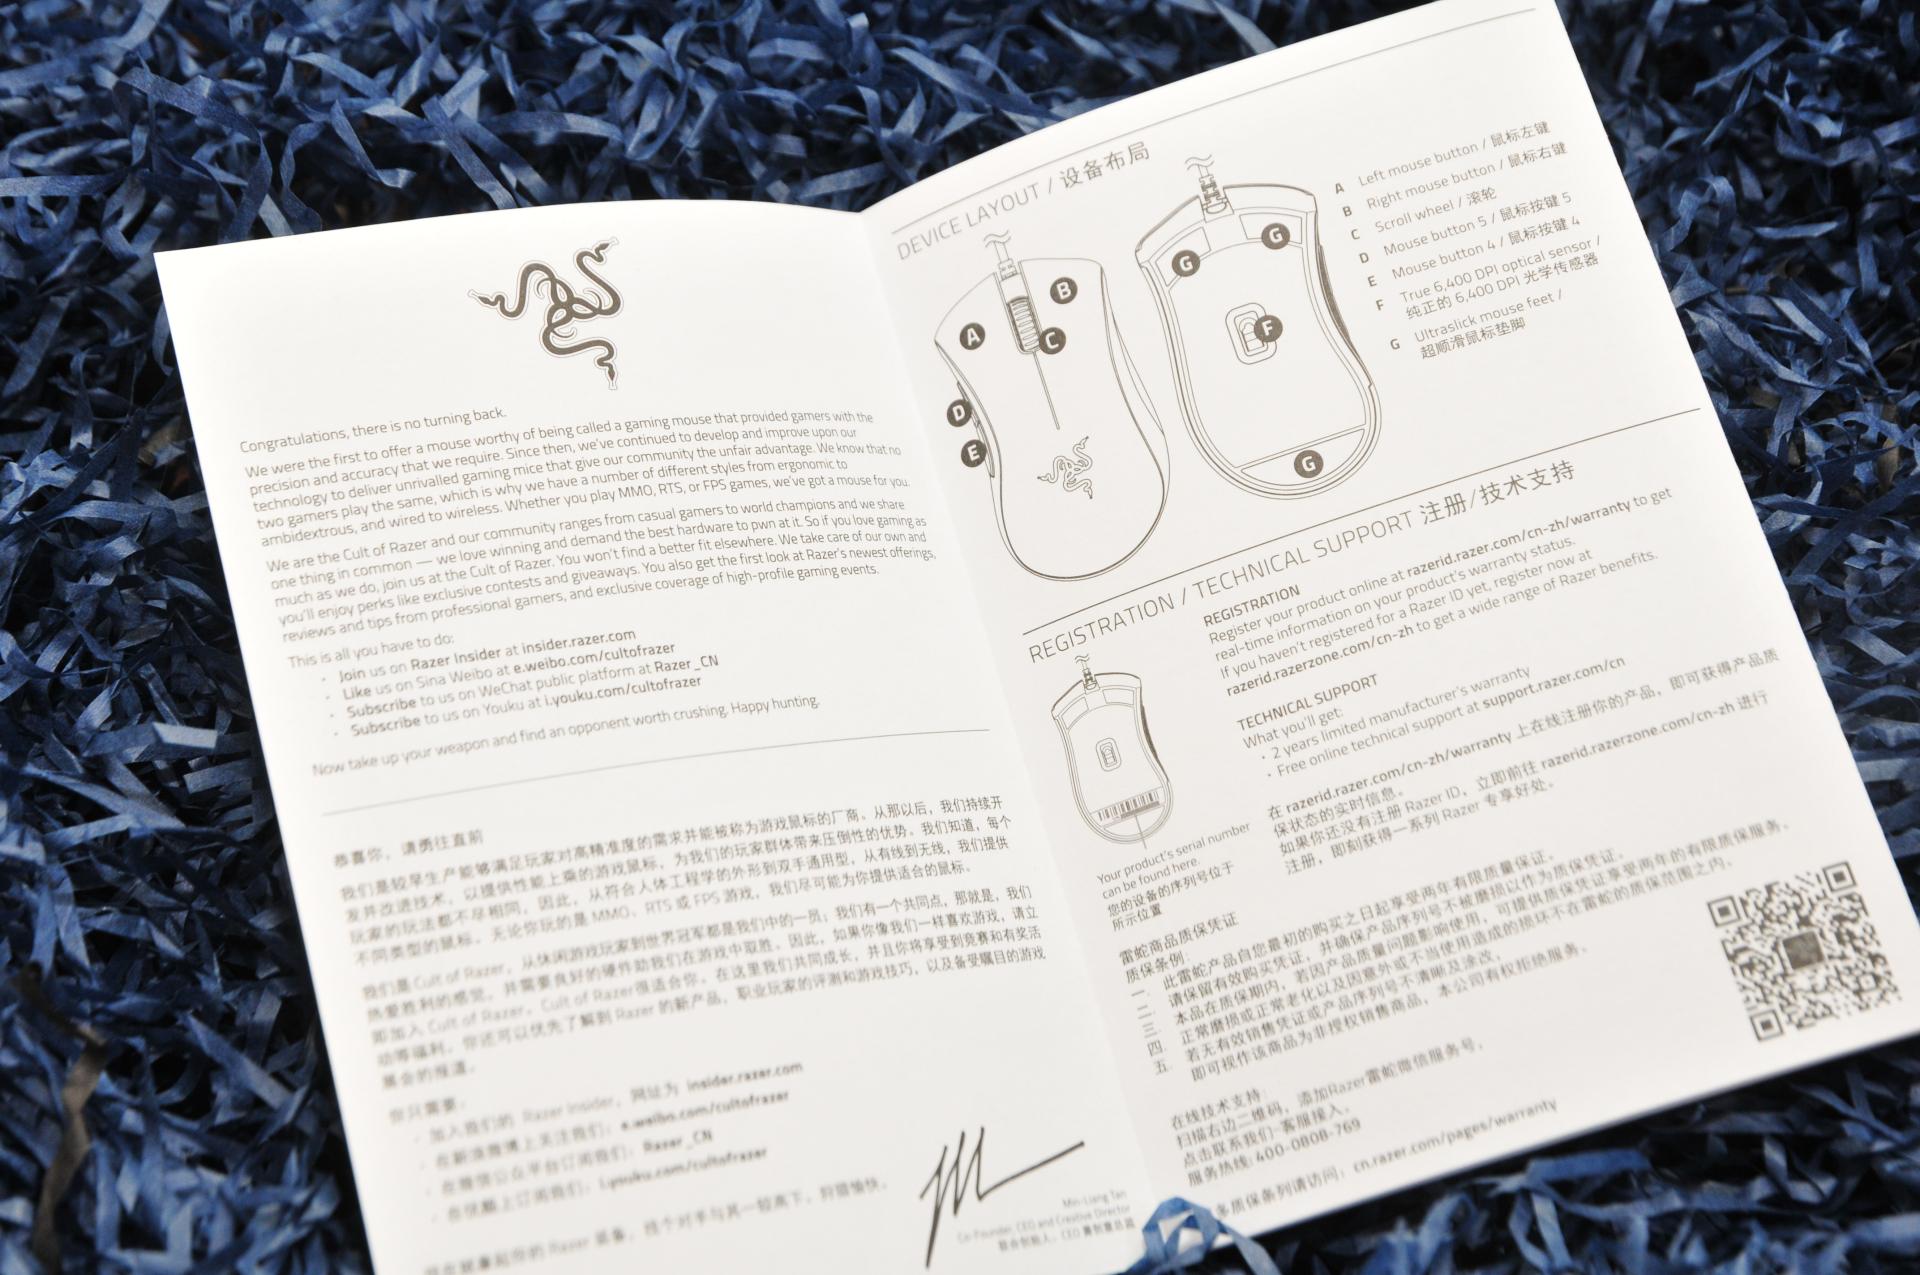 Congratulations, there is no turning back.
We were the first to offer a mouse worthy of being called a gaming mouse that provided gamers with the
precision and accuracy that we require. Since then, we've continued to develop and improve upon our
technology to deliver unrivalled gaming mice that give our community the unfair advantage. We know that no
two gamers play the same, which is why we have a number of different styles from ergonomic to
ambidextrous, and wired to wireless. Whether you play MMO, RTS, or FPS games, we've got a mouse for you.
We are the Cult of Razer and our community ranges from casual gamers to world champions and we share
one thing in common — we love winning and demand the best hardware to pwn at it. So if you love gaming as
much as we do, join us at the Cult of Razer. You won't find a better fit elsewhere. We take care of our own and
you'll enjoy perks like exclusive contests and giveaways. You also get the first look at Razer's newest offerings,
reviews and tips from professional gamers, and exclusive coverage of high-profile gaming events.
This is all you have to do:
· Join us on Razer Insider at insider.razer.com
· Like us on Sina Weibo at e.weibo.com/cultofrazer
· Subscribe to us on WeChat public platform at Razer_CN
· Subscribe to us on Youku at i.youku.com/cultofrazer
Now take up your weapon and find an opponent worth crushing. Happy hunting.
恭喜你，请勇往直前
我们是较早生产能够满足玩家对高精准度的需求并能被称为游戏鼠标的厂商。从那以后，我们持续开
发并改进技术，以提供性能上乘的游戏鼠标，为我们的玩家群体带来压倒性的优势。我们知道，每个
玩家的玩法都不尽相同，因此，从符合人体工程学的外形到双手通用型，从有线到无线，我们提供
不同类型的鼠标。无论你玩的是 MMO、RTS 或 FPS 游戏，我们尽可能为你提供适合的鼠标。
我们是 Cult of Razer，从休闲游戏玩家到世界冠军都是我们中的一员；我们有一个共同点，那就是，我们
热爱胜利的感觉，并需要良好的硬件助我们在游戏中取胜。因此，如果你像我们一样喜欢游戏，请立
即加入 Cult of Razer。Cult of Razer很适合你。在这里我们共同成长，并且你将享受到竞赛和有奖活
动等福利。你还可以优先了解到 Razer 的新产品，职业玩家的评测和游戏技巧，以及备受瞩目的游戏
展会的报道。
你只需要：
· 加入我们的 Razer Insider，网址为 insider.razer.com
· 在新浪微博上关注我们：e.weibo.com/cultofrazer
· 在微信公众平台订阅我们：Razer_CN
· 在优酷上订阅我们：i.youku.com/cultofrazer
现在就拿起你的 Razer 装备，找个对手与其一较高下，狩猎愉快。
Min-Liang Tan
Co-Founder, CEO and Creative Director
联合创始人、CEO 兼创意总监
DEVICE LAYOUT / 设备布局
A
B
C
D
E
G
G
F
G
A Left mouse button / 鼠标左键
B Right mouse button / 鼠标右键
C Scroll wheel / 滚轮
D Mouse button 5 / 鼠标按键 5
E Mouse button 4 / 鼠标按键 4
F True 6,400 DPI optical sensor /
纯正的 6,400 DPI 光学传感器
G Ultraslick mouse feet /
超顺滑鼠标垫脚
REGISTRATION / TECHNICAL SUPPORT 注册/技术支持
REGISTRATION
Register your product online at razerid.razer.com/cn-zh/warranty to get
real-time information on your product's warranty status.
If you haven't registered for a Razer ID yet, register now at
razerid.razerzone.com/cn-zh to get a wide range of Razer benefits.
TECHNICAL SUPPORT
What you'll get:
· 2 years limited manufacturer's warranty
· Free online technical support at support.razer.com/cn
在 razerid.razer.com/cn-zh/warranty 上在线注册你的产品，即可获得产品质
保状态的实时信息。
如果你还没有注册 Razer ID，立即前往 razerid.razerzone.com/cn-zh 进行
注册，即刻获得一系列 Razer 专享好处。
Your product's serial number
can be found here.
您的设备的序列号位于
所示位置
雷蛇商品质保凭证
质保条例：
一. 此雷蛇产品自您最初的购买之日起享受两年有限质量保证。
二. 请保留有效购买凭证，并确保产品序列号不被磨损以作为质保凭证。
三. 本品在质保期内，若因产品质量问题影响使用，可提供质保凭证享受两年的有限质保服务。
四. 正常磨损或正常老化以及因意外或不当使用造成的损坏不在雷蛇的质保范围之内。
五. 若无有效销售凭证或产品序列号不清晰及涂改，
即可视作该商品为非授权销售商品，本公司有权拒绝服务。
在线技术支持：
扫描右边二维码，添加Razer雷蛇微信服务号，
点击联系我们-客服接入。
服务热线: 400-0808-769
多质保条列请访问：cn.razer.com/pages/warranty